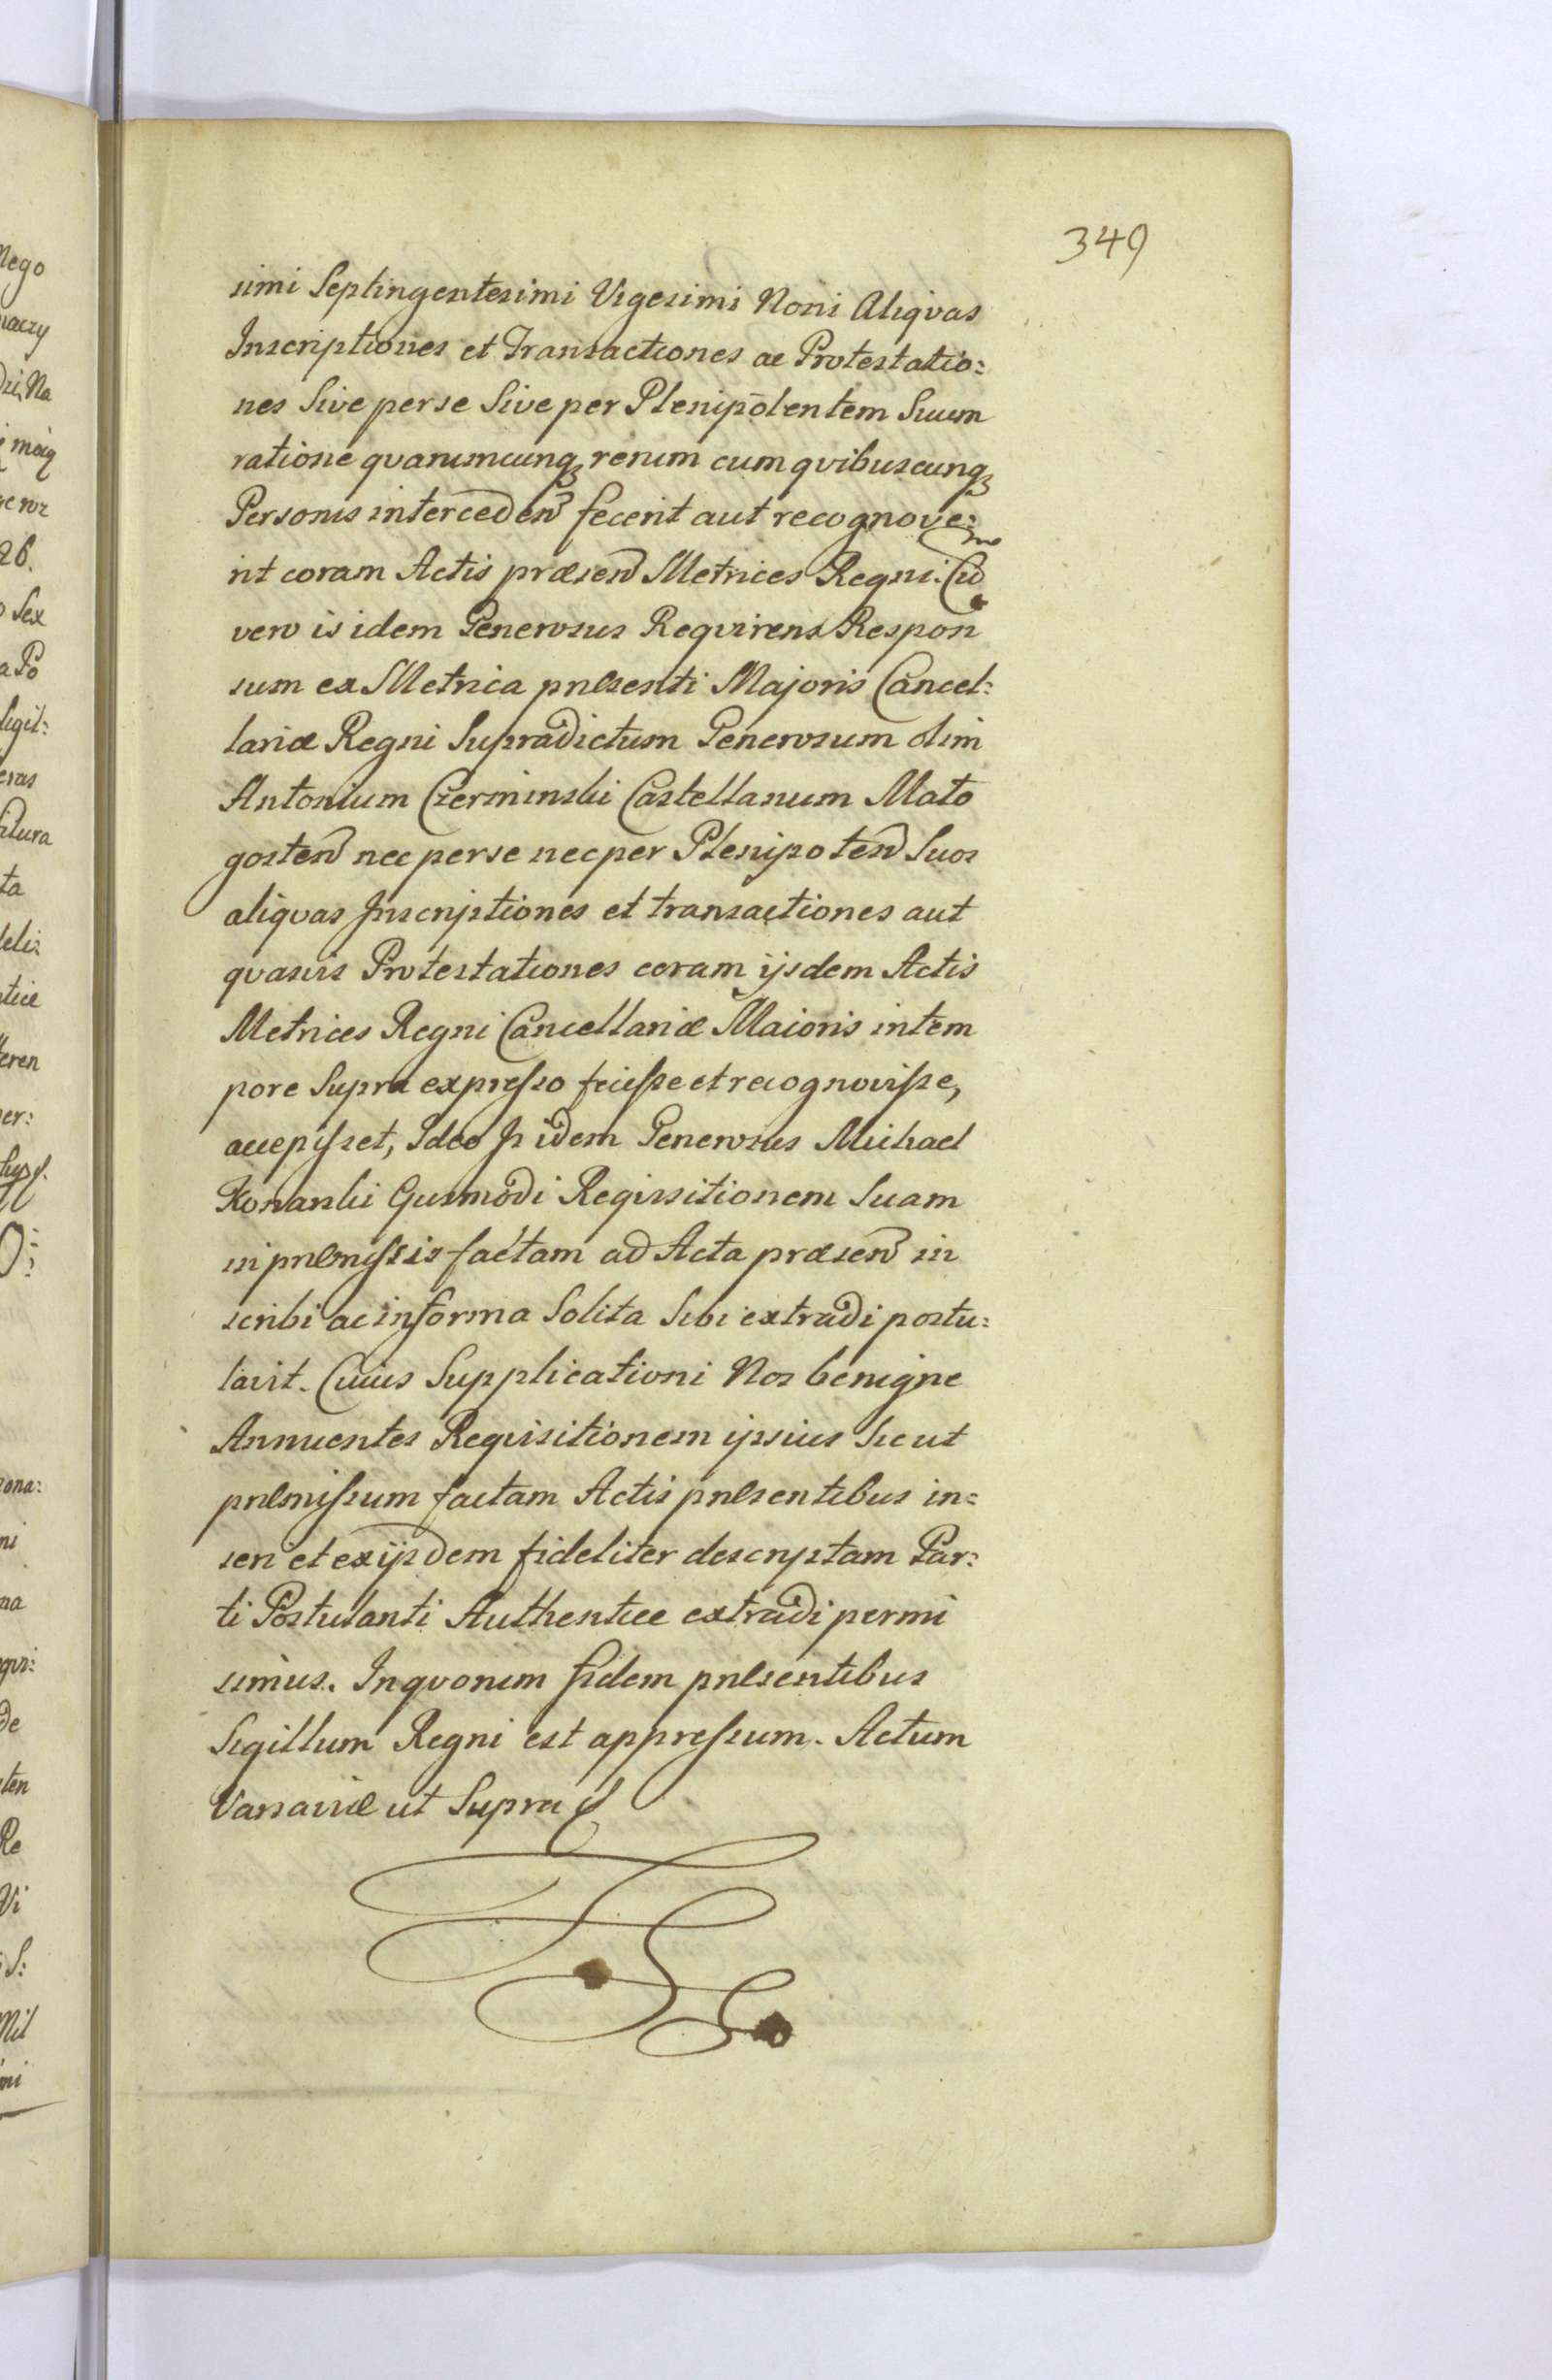 349
simi Septingentesimi Vigesimi Noni Aliqvas
Inscriptiones et Transactiones ac Protestatio:
nes Sive per se Sive per Plenipotentem Suum
ratione qvarumcunqꝫ rerum cum qvibuscunqꝫ
Personis interceden̄ fecerit aut recognove:
rit coram Actis præsen̄ Metrices Regni. Cū
vero is idem Generosus Reqvirens Respon
sum ex Metrica pnlesenti Majoris Cancel:
lariæ Regni Supradictum Generosum olim
Antonium Czerminski Castellanum Mało
gosten̄ nec per se nec per Plenipoten̄ Suos
aliqvas Inscriptiones et transactiones aut
qvasvis Protestationes coram ijsdem Actis
Metrices Regni Cancellariæ Maioris in tem
pore Supra expresso fecisse et recognovisse,
accepisset, Ideo Is idem Generosus Michael
Konarski Ejusmodi Reqvisitionem Suam
in pnlemissis factam ad Acta præsen̄ in
scribi ac in forma Solita Sibi extradi postu:
lavit. Cuius Supplicationi Nos benigne
Annuentes Reqvisitionem ipsius Sicut
pnlemissum factam Actis pnlesentibus in=
seri et ex ijsdem fideliter descriptam Par:
ti Postulanti Authentice extradi permi
simus. In qvorum fidem pnlesentibus
Sigillum Regni est appressum. Actum
Varsaviæ ut Supra